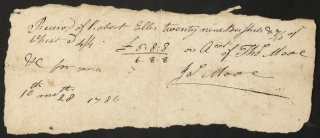 Receiv'd of Robert Ellis twenty nine Bushels & 1/2 of
Wheat a 4/4 £ 6.8.8 on Acct of Thos Moore
6.8.8
&c for me
Js Moore
10th month
28 1786